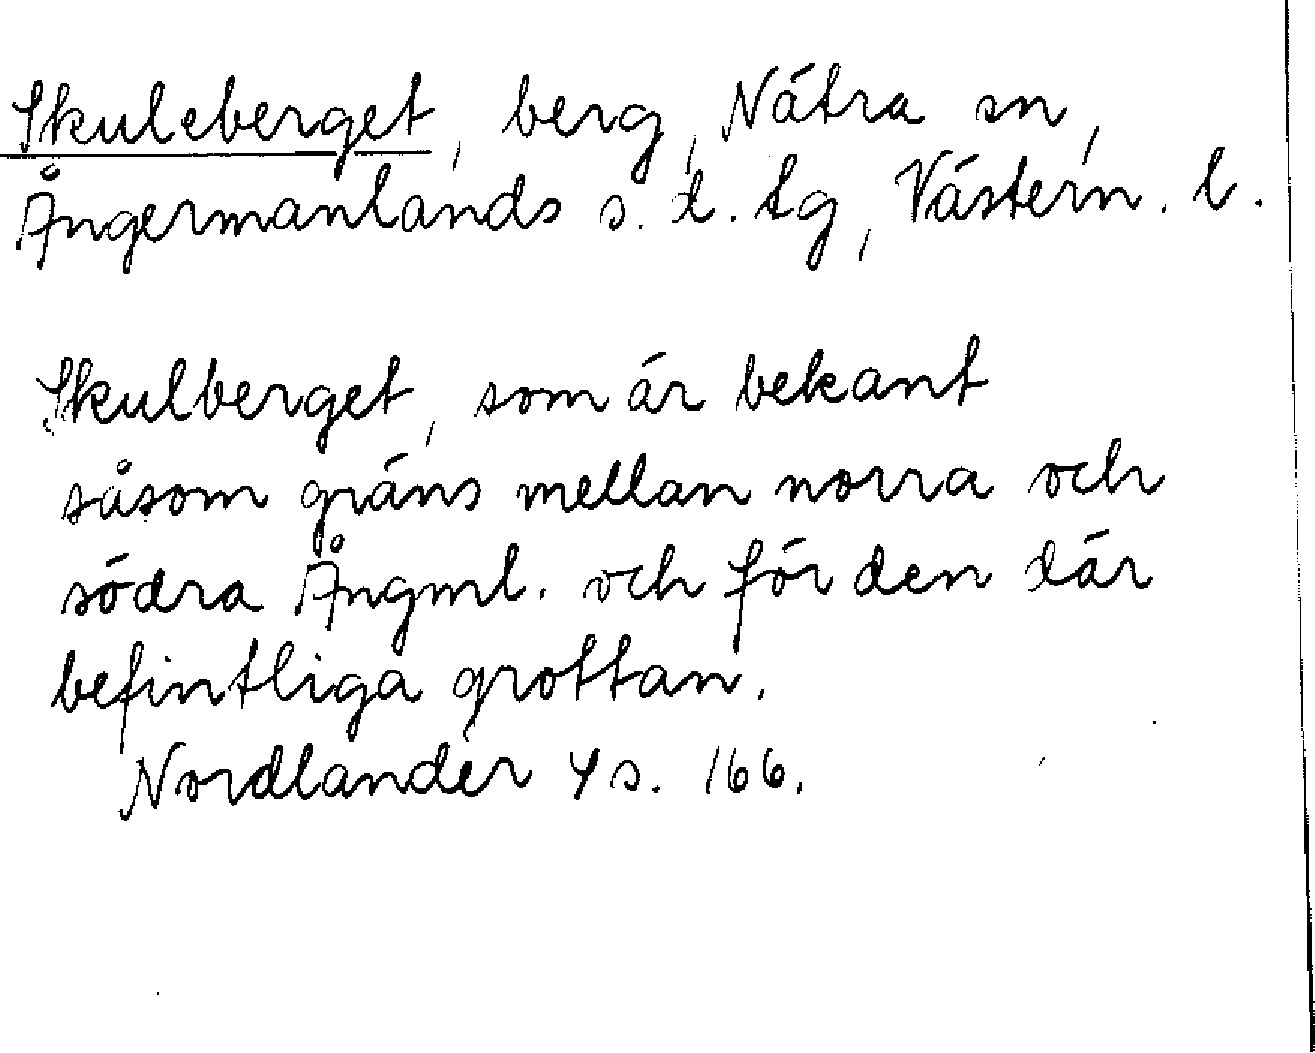 Skuleberget, berg, Nätra sn,
Ångermanlands s. d. tg, Västern. l.
Skulberget, som är bekant
såsom gräns mellan norra och
södra Ångml. och för den där
befintliga grottan.
Nordlander 4 s. 166.